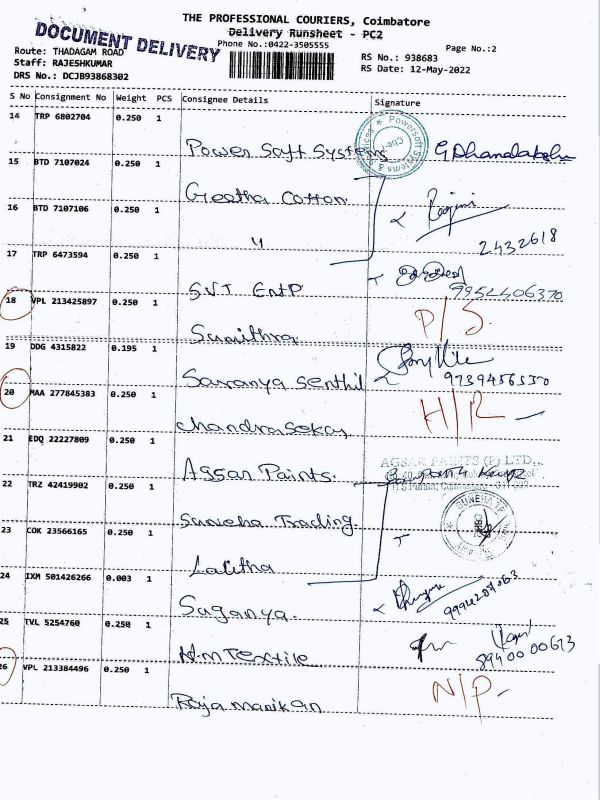 THE PROFESSIONAL COURIERS, Coimbatore
Delivery Runsheet - PC2
DOCUMENT DELIVERY
Phone No.:0422-3505555
Page No.:2
Route: THADAGAM ROAD
RS No.: 938683
Staff: RAJESHKUMAR
RS Date: 12-May-2022
DRS No.: DCJB93868302
S No Consignment No Weight PCS Consignee Details Signature
14 TRP 6802704 0.250 1
Power Soft Systems
15 BTD 7107024 0.250 1
Geetha Cotton
16 BTD 7107106 0.250 1
2432618
17 TRP 6473594 0.250 1
SVT EntP
9952406370
18 VPL 213425897 0.250 1
Sumithra P/S.
19 DDG 4315822 0.195 1
Saranya Senthil
20 MAA 277845383 0.250 1
Chandrasekar
21 EDQ 22227809 0.250 1
Agsar Paints.
AGSAR PAINTS (P) LTD.,
22 TRZ 42419902 0.250 1
Trading.
23 COK 23566165 0.250 1
Lalitha
24 IXM 501426266 0.003 1
Suganya.
25 TVL 5254760 0.250 1
H.M Textile
26 VPL 213384496 0.250 1
N/P-
Raja manikan